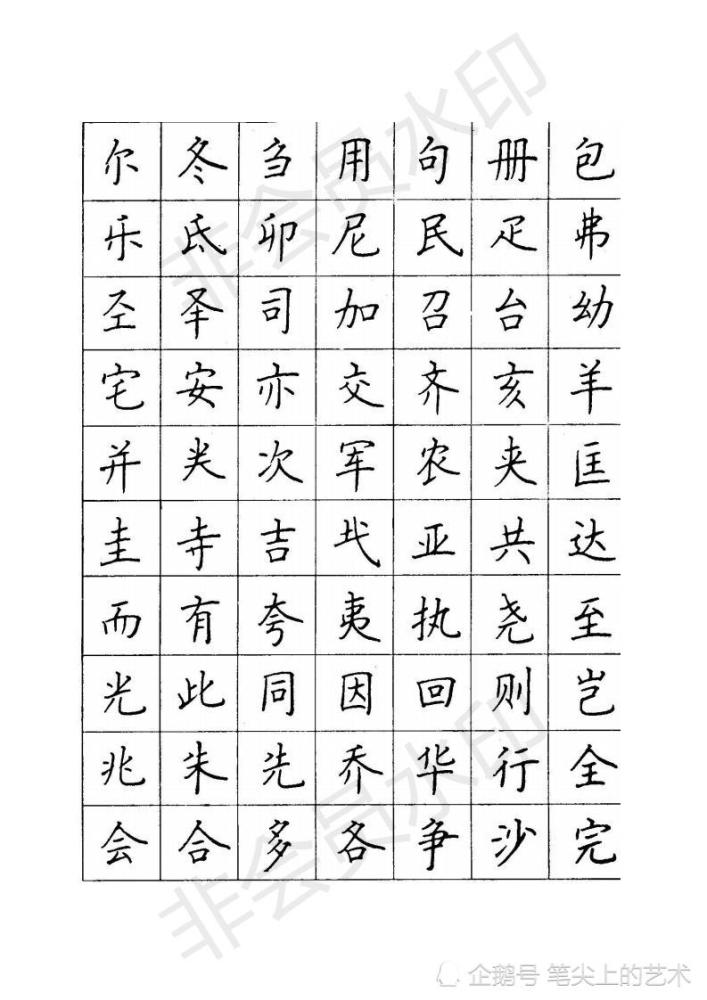 非会员水印
尔 冬 刍 用 句 册 包
乐 氐 卯 尼 民 疋 弗
圣 泽 司 加 召 台 幼
宅 安 亦 交 齐 亥 羊
并 关 次 军 农 夹 匡
圭 寺 吉 弋 亚 共 达
而 有 夸 夷 执 尧 至
光 此 同 因 回 则 岂
兆 朱 先 乔 华 行 全
会 合 多 各 争 沙 完
非会员水印
企鹅号 笔尖上的艺术